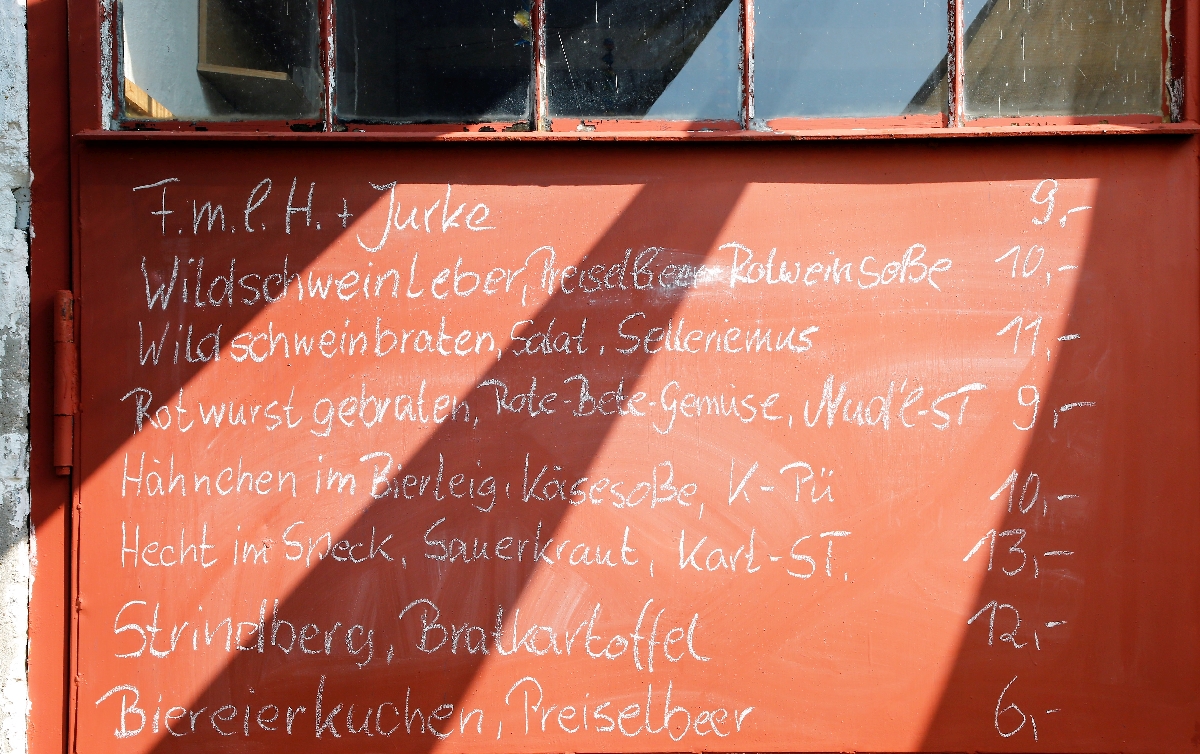 F.m.l.H. + Jurke 9,-
Wildschweinleber, Preiselbeer-Rotweinsoße 10,-
Wildschweinbraten, Salat, Selleriemus 11,-
Rotwurst gebraten, Rote-Bete-Gemüse, Nud'l-ST 9,-
Hähnchen im Bierteig, Käsesoße, K-Pü 10,-
Hecht im Speck, Sauerkraut, Kart-ST. 13,-
Strindberg, Bratkartoffel 12,-
Biereierkuchen, Preiselbeer 6,-